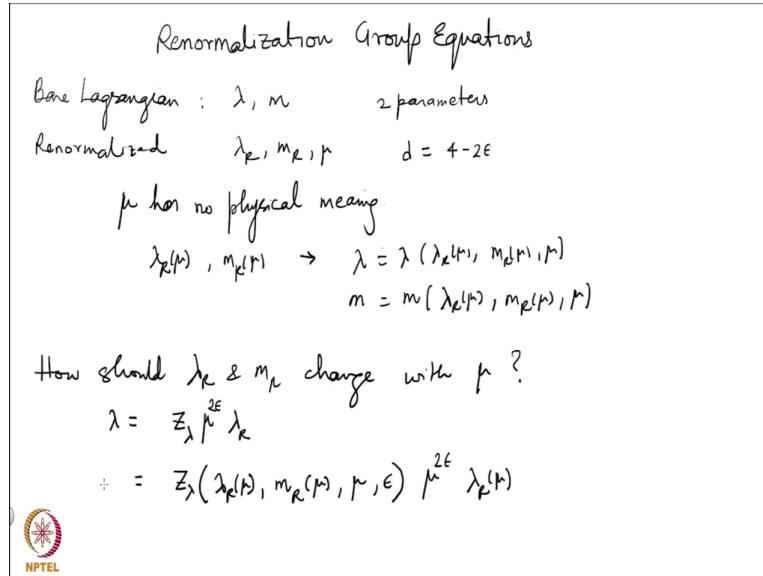 Renormalization Group Equations
Bare Lagrangian : λ, m 2 parameters
Renormalized λ_R, m_R, μ d = 4-2ε
μ has no physical meaing
λ_R(μ), m_R(μ) → λ = λ(λ_R(μ), m_R(μ), μ)
m = m(λ_R(μ), m_R(μ), μ)
How should λ_R & m_R change with μ ?
λ = Z_λ μ^{2ε} λ_R
= Z_λ(λ_R(μ), m_R(μ), μ, ε) μ^{2ε} λ_R(μ)
NPTEL